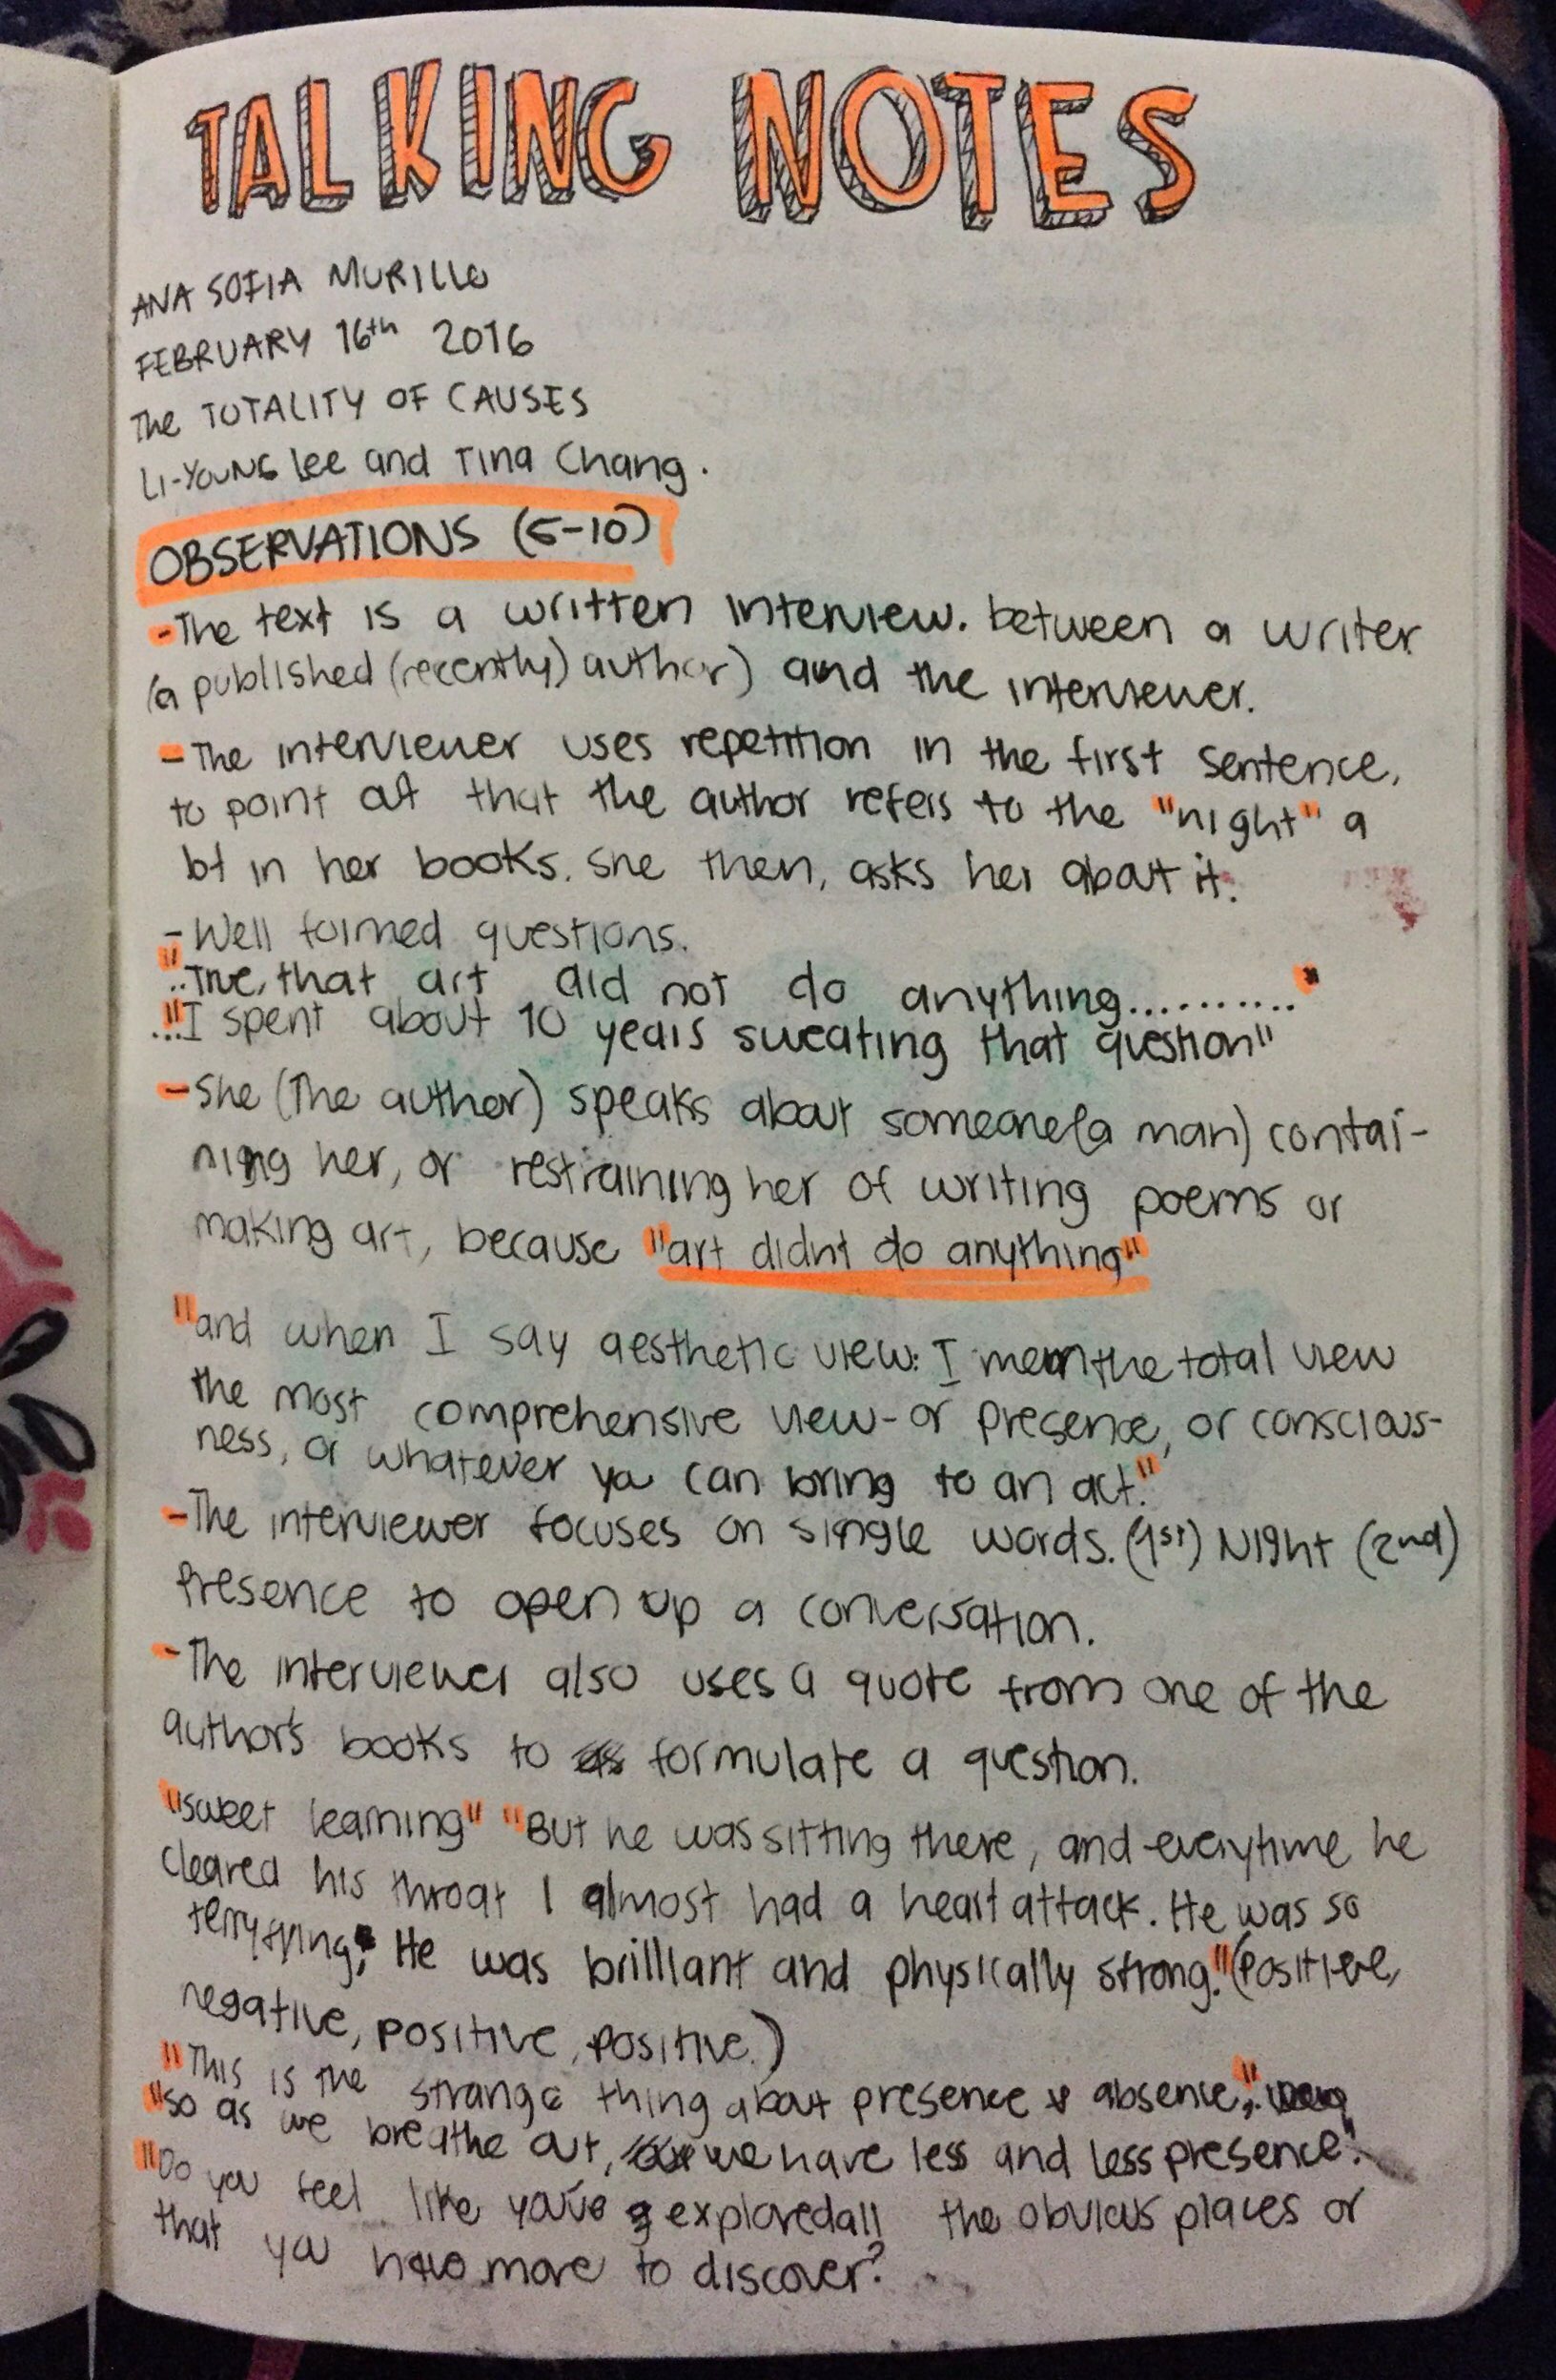 TALKING NOTES
ANA SOFIA MURILLO
FEBRUARY 16th 2016
The TOTALITY OF CAUSES
LI-YOUNG Lee and Tina Chang.
OBSERVATIONS (5-10)
-The text is a written interview. between a writer
(a published (recently) author) and the interviewer.
-The interviewer uses repetition in the first sentence,
to point out that the author refers to the "night" a
lot in her books. She then, asks her about it.
-Well formed questions.
"..True, that art did not do anything.........."
..."I spent about 10 years sweating that question"
-She (The author) speaks about someone (a man) contai-
ning her, or restraining her of writing poems or
making art, because "art didnt do anything"
"and when I say aesthetic view: I mean the total view
the most comprehensive view-or presence, or conscious-
ness, or whatever you can bring to an act."
-The interviewer focuses on single words. (1st) Night (2nd)
Presence to open up a conversation.
-The interviewer also uses a quote from one of the
author's books to formulate a question.
"sweet learning" "But he was sitting there, and everytime he
cleared his throat I almost had a heart attack. He was so
terryfying; He was brilliant and physically strong." (Positive,
negative, positive, positive.)
"This is the strange thing about presence & absence,"
"so as we breathe out, we have less and less presence."
"Do you feel like you've explored all the obvious places or
that you have more to discover?